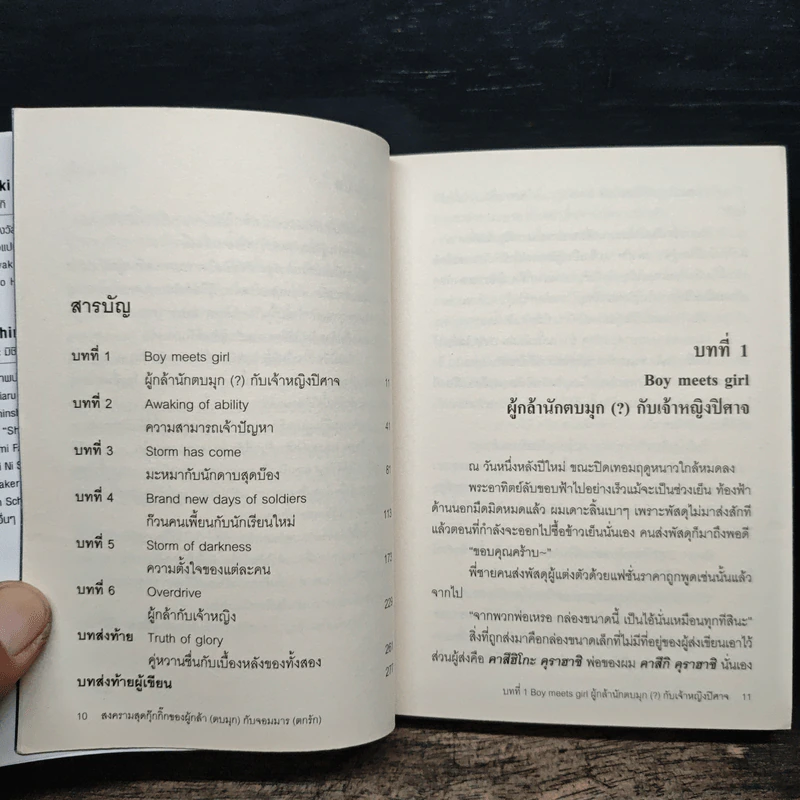 สารบัญ
บทที่ 1 Boy meets girl
ผู้กล้านักตบมุก (?) กับเจ้าหญิงปิศาจ 11
บทที่ 2 Awaking of ability
ความสามารถเจ้าปัญหา 41
บทที่ 3 Storm has come
มะหมากับนักดาบสุดบ๊อง 81
บทที่ 4 Brand new days of soldiers
ก๊วนคนเพี้ยนกับนักเรียนใหม่ 113
บทที่ 5 Storm of darkness
ความตั้งใจของแต่ละคน 173
บทที่ 6 Overdrive
ผู้กล้ากับเจ้าหญิง 229
บทส่งท้าย Truth of glory 261
คู่หวานชื่นกับเบื้องหลังของทั้งสอง
บทส่งท้ายผู้เขียน 277
10 สงครามสุดกุ๊กกิ๊กของผู้กล้า (ตบมุก) กับจอมมาร (ตกรัก)
บทที่ 1
Boy meets girl
ผู้กล้านักตบมุก (?) กับเจ้าหญิงปิศาจ
ณ วันหนึ่งหลังปีใหม่ ขณะปิดเทอมฤดูหนาวใกล้หมดลง
พระอาทิตย์ลับขอบฟ้าไปอย่างเร็วแม้จะเป็นช่วงเย็น ท้องฟ้า
ด้านนอกมืดมิดหมดแล้ว ผมเดาะลิ้นเบาๆ เพราะพัสดุไม่มาส่งสักที
แล้วตอนที่กำลังจะออกไปซื้อข้าวเย็นนั่นเอง คนส่งพัสดุก็มาถึงพอดี
“ขอบคุณคร้าบ~”
พี่ชายคนส่งพัสดุผู้แต่งตัวด้วยแฟชั่นราคาถูกพูดเช่นนั้นแล้ว
จากไป
“จากพวกพ่อเหรอ กล่องขนาดนี้ เป็นไอ้นั่นเหมือนทุกทีสินะ”
สิ่งที่ถูกส่งมาคือกล่องขนาดเล็กที่ไม่มีที่อยู่ของผู้ส่งเขียนเอาไว้
ส่วนผู้ส่งคือ คาสึฮิโกะ คุราฮาชิ พ่อของผม คาสึกิ คุราฮาชิ นั่นเอง
บทที่ 1 Boy meets girl ผู้กล้านักตบมุก (?) กับเจ้าหญิงปิศาจ 11